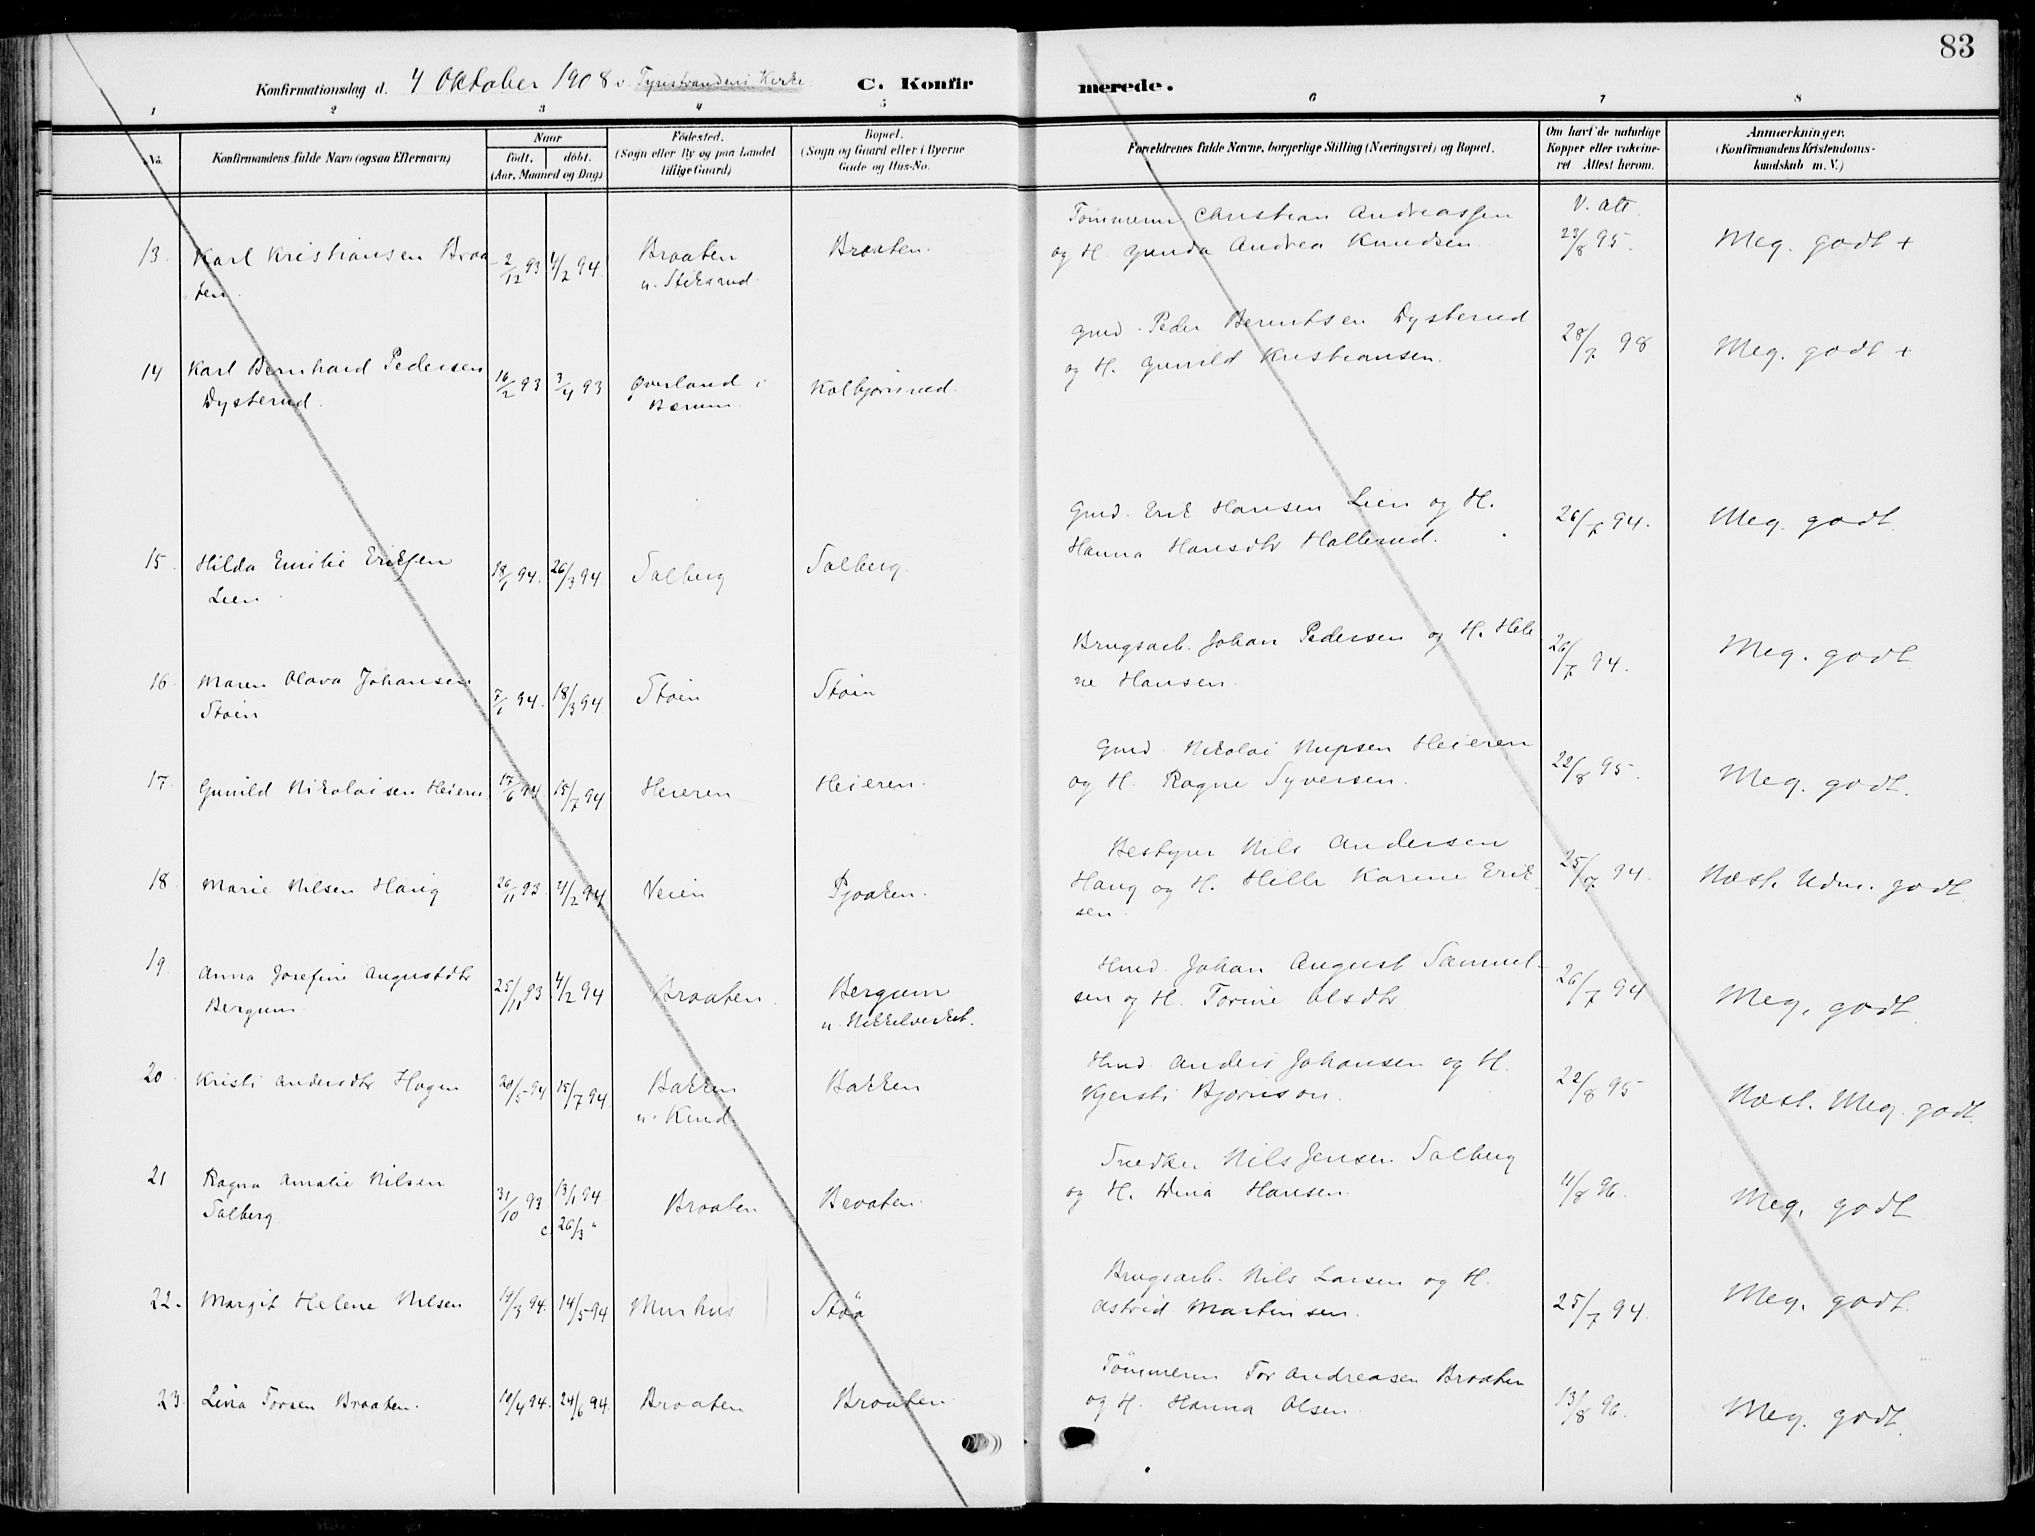 83
Konfirmationsdag d. 4 Oktober 1908 v. Tyristrandens Kirke C. Konfirmerede.
1 2 3 4 5 6 7 8
No.
Konfirmandens fulde Navn (ogsaa Efternavn)
Naar
födt. döbt.
(Aar, Maaned og Dag)
Födested.
(Sogn eller By og paa Landet
tillige Gaard)
Bopæl.
(Sogn og Gaard eller i Byerne
Gade og Hus-No.
Forældrenes fulde Navne, borgerlige Stilling (Næringsvei) og Bopæl.
Om havt de naturlige
Kopper eller vakcine-
ret Attest herom.
Anmærkninger.
(Konfirmandens Kristendoms-
kundskab m. V.)
13. Karl Kristiansen Braa-
ten.
2/12 93 4/2 94
Braaten
u. Stiksrud.
Braaten.
Tømmerm Christian Andreassen
og H. Gunda Andrea Knudsen.
V. att.
23/8 95.
Meg. godt +
14 Karl Bernhard Pedersen
Dysterud.
16/2 93 3/4 93
Øverland i
Bærum.
Kolbjørnsrud.
Gmd. Peder Berentsen Dysterud
og H. Gunild Kristiansen.
28/7 98
Meg. godt +
15. Hilda Emilie Eriksen
Lien.
18/1 94. 26/3 94
Solberg
Solberg.
Gmd. Erik Hansen Lien og H.
Hanna Hansdtr Hollerud.
26/7 94.
Meg. godt.
16. Maren Olava Johansen
Støin
7/1 94. 18/3 94
Støin
Støin
Brugsarb. Johan Pedersen og H. Hele
ne Hansen.
26/7 94.
Meg. godt
17. Gunild Nikolaisen Heieren
17/6 94 15/7 94
Heieren
Heieren.
Gmd. Nikolai Nupsen Heieren
og H. Ragne Syversen.
22/8 95.
Meg. godt.
18. Marie Nilsen Haug
26/11 93. 4/2 94
Veien
Pjoaken.
Bestyrer Nils Andersen
Haug og H. Helle Karine Erik-
sen.
25/7 94.
Næst. Udm. godt.
19. Anna Josefine Augustdtr
Bergum.
25/11 93 4/2 94
Braaten.
Bergum
u. Nikkelverket.
Hmd. Johan August Samuel-
sen og H. Torine Olsdtr
26/7 94
Meg. godt.
20. Kristi Andersdtr Hagen
20/5 94 15/7 94
Bakken
u. Rud
Bakken
Hmd. Anders Johansen og H.
Kjersti Bjørnson.
22/8 95
Næst. Meg. godt.
21 Ragna Amalie Nilsen
Solberg
31/10 93 13/1 94.
c. 26/3 "
Braaten
Braaten.
Snedker Nils Jensen Solberg
og H. Dina Hansen.
11/8 96.
Meg. godt
22. Margit Helene Nilsen
19/3 94. 14/5 94
Murhus
Støa
Brugsarb. Nils Larsen og H.
Astrid Martinsen.
25/7 94.
Meg. godt.
23. Lina Torsen Braaten.
10/4 94. 24/6 94.
Braaten
Braaten
Tømmerm Tor Andreasen Braaten
og H. Hanna Olsen.
13/8 96.
Meg. godt.